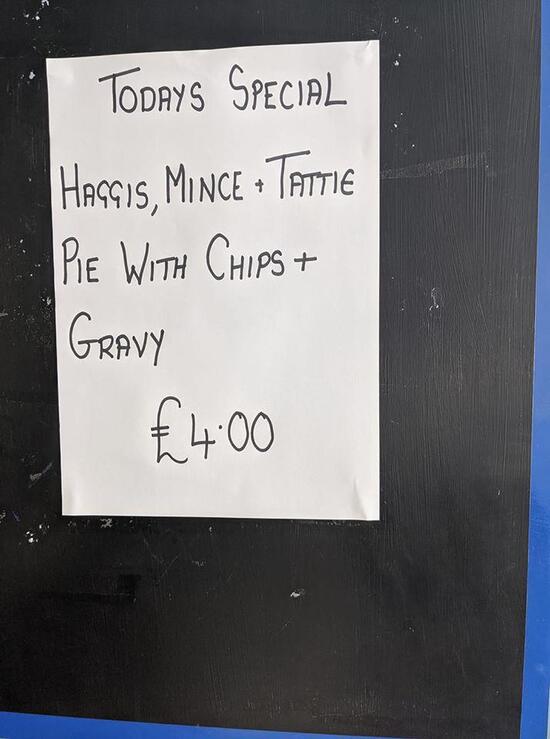 TODAYS SPECIAL
HAGGIS, MINCE + TATTIE
PIE WITH CHIPS +
GRAVY
£4.00